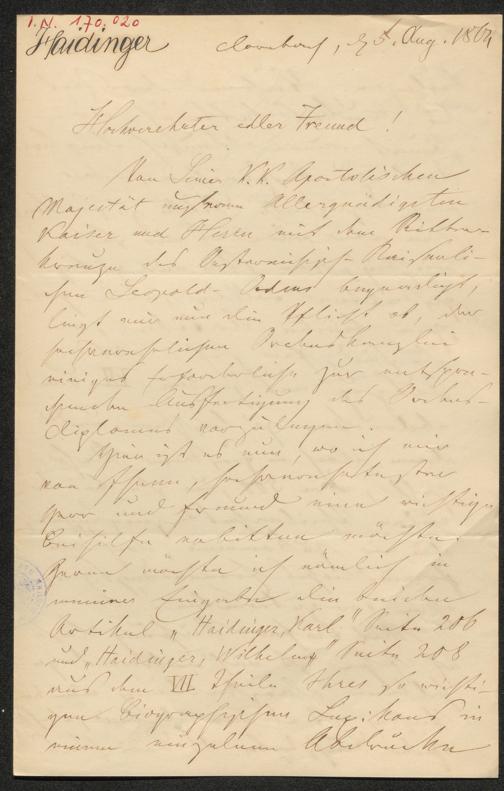 I.N. 170.020
Haidinger
Dornbach, d 5. Aug. 1864
Hochverehrter edler Freund!
Von Seiner K. K. Apostolischen
Majestät unserm Allergnädigsten
Kaiser und Herrn mit dem Ritter-
kreuze des Oesterreichisch-Kaiserli-
chen Leopold-Ordens begnadigt,
liegt mir nun die Pflicht ob, der
hochansehnlichen Ordenskanzlei
einiges Erforderliche zur entspre-
chenden Ausfertigung des Ordens-
diplomes vorzulegen.
Hier ist es nun, wo ich mir
von Ihnen, hochverehrtester
Herr und Freund eine wichtige
Beihilfe erbitten möchte.
Gerne möchte ich nämlich in
meiner Eingabe die beiden
Artikel „Haidinger, Karl" Seite 206
und „Haidinger, Wilhelm" Seite 208
aus dem VII Theile Ihres so wichti-
gen Biographischen Lexikons in
einem einzelnen Abdrucke